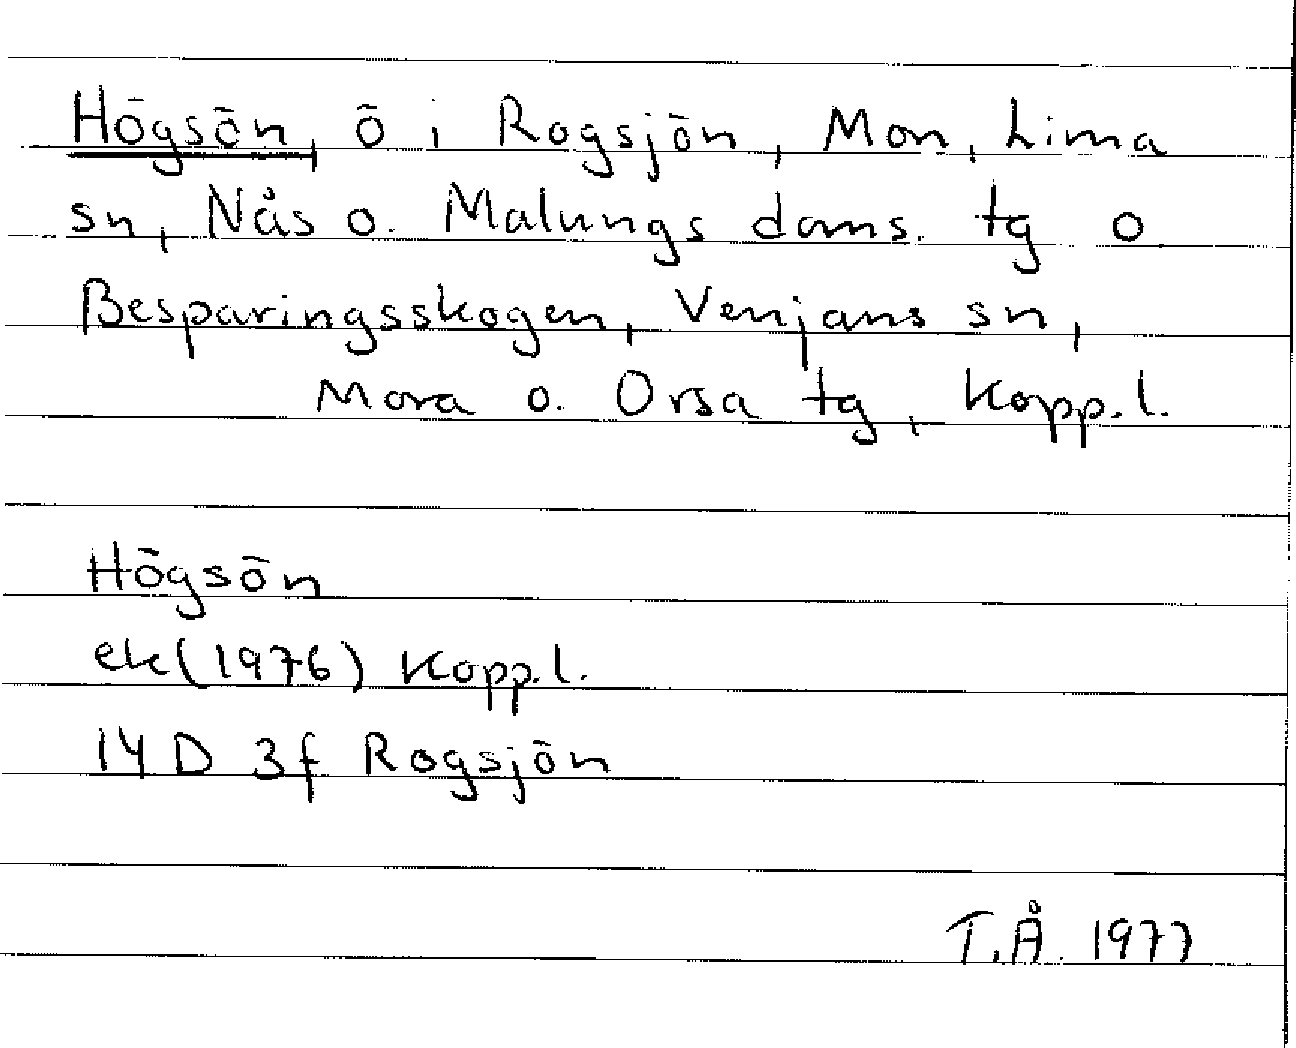 Högsön, ö i Rogsjön, Mon, Lima
sn, Nås o. Malungs doms. tg o
Besparingsskogen, Venjans sn,
Mora o. Orsa tg, Kopp.l.
Högsön
ek(1976) Kopp.l.
14D 3f Rogsjön
T.Å. 1977